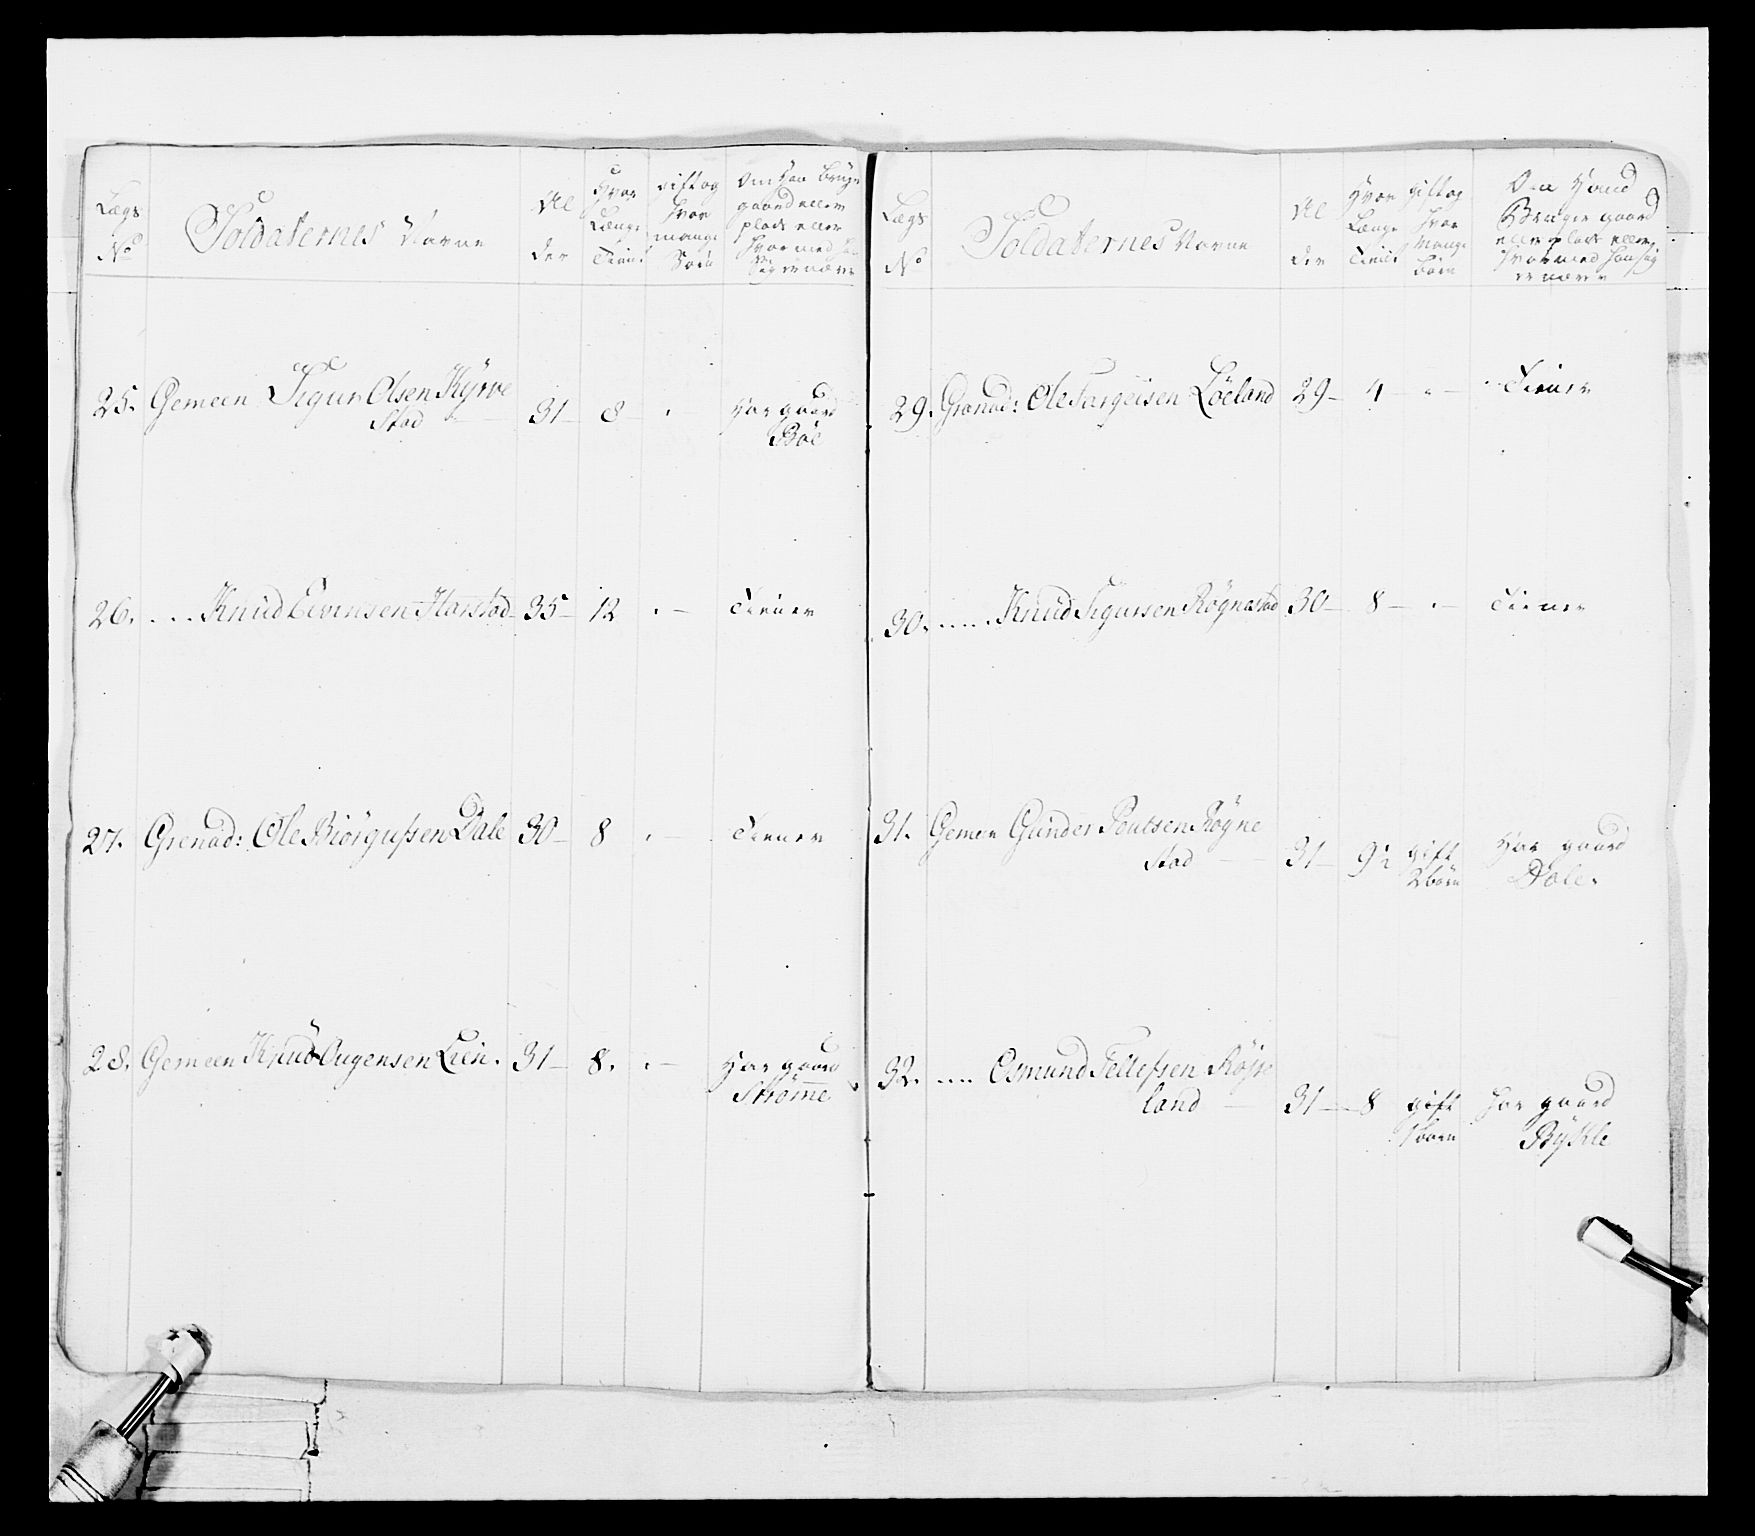 Lægs No
Soldaternes Navne
Al der
Hvor Længe Tient
gift og hvor mange Børn
Om Han bruger gaard eller plads eller hvormed Han Sig ernærer
25. Gemeen Sigur Olsen Kyrve
Stad 31 – 8 – har gaard
Bøe
26. .... Knud Evensen Harstad – 35 – 12 . – Tiener
27. Grenad: Ole Biörgufsen Dale 30 – 8 . – Tiener
28. Gemeen Knud Augensen Lien. 31 – 8. . – Har gaard
Strømme
Lægs No
Soldaternes Navne
Al der
Hvor Længe Tient
gift og hvor Mange børn
Om Hand Bruger gaard eller plads eller hvormed han sig ernærer
29. Grenad: Ole Targeisen Löeland 29 – 4 – Tiener
30. ..... Knud Sigursen Rögnestad 30 – 8 – . – Tiener
31. Gemeen Gunder Poulsen Rögne
Stad – 31 – 9½ gift Har gaard
2 børn Dale.
32. .... Osmund Tellefsen Röyse
land – 31 – 8 gift har gaard
1 barn Bykle